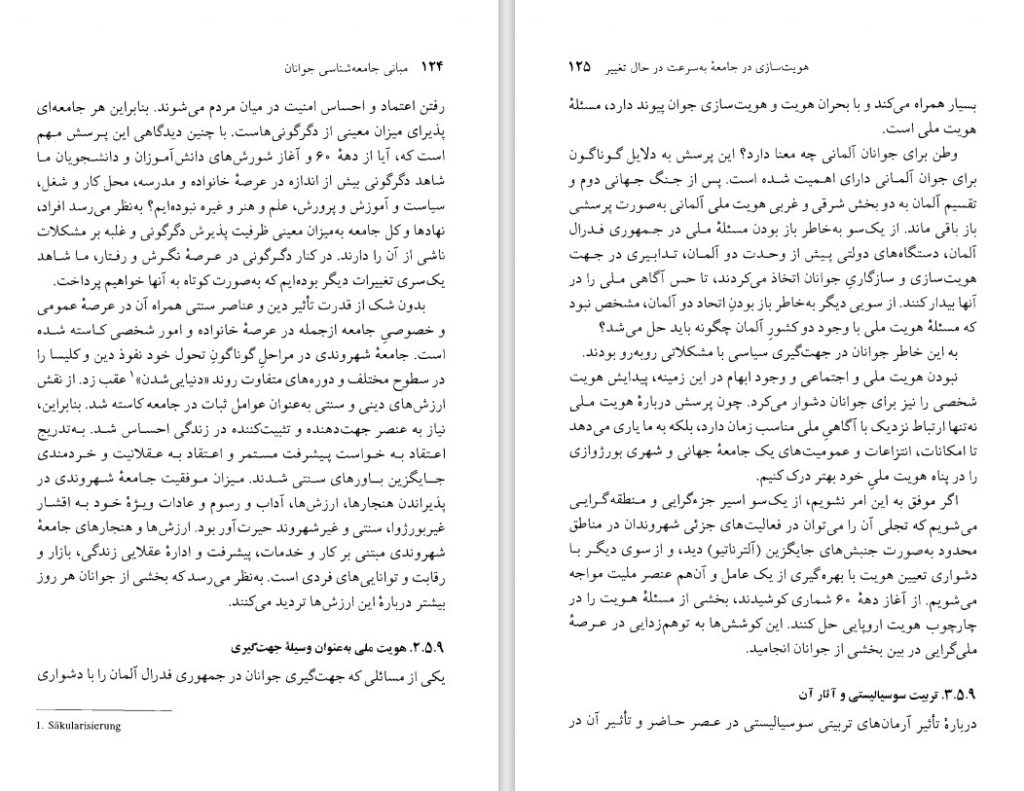 ۱۲۴ مبانی جامعه‌شناسی جوانان
رفتن اعتماد و احساس امنیت در میان مردم می‌شوند. بنابراین هر جامعه‌ای
پذیرای میزان معینی از دگرگونی‌هاست. با چنین دیدگاهی این پرسش مهم
است که، آیا از دههٔ ۶۰ و آغاز شورش‌های دانش‌آموزان و دانشجویان ما
شاهد دگرگونی بیش از اندازه در عرصهٔ خانواده و مدرسه، محل کار و شغل،
سیاست و آموزش و پرورش، علم و هنر و غیره نبوده‌ایم؟ به‌نظر می‌رسد افراد،
نهادها و کل جامعه به‌میزان معینی ظرفیت پذیرش دگرگونی و غلبه بر مشکلات
ناشی از آن را دارند. در کنار دگرگونی در عرصهٔ نگرش و رفتار، ما شاهد
یک‌سری تغییرات دیگر بوده‌ایم که به‌صورت کوتاه به آنها خواهیم پرداخت.
بدون شک از قدرت تأثیر دین و عناصر سنتی همراه آن در عرصهٔ عمومی
و خصوصیِ جامعه ازجمله در عرصهٔ خانواده و امور شخصی کاسته شده
است. جامعهٔ شهروندی در مراحلِ گوناگونِ تحول خود نفوذ دین و کلیسا را
در سطوح مختلف و دوره‌های متفاوت روند «دنیایی‌شدن»۱ عقب زد. از نقش
ارزش‌های دینی و سنتی به‌عنوان عوامل ثبات در جامعه کاسته شد. بنابراین،
نیاز به عنصر جهت‌دهنده و تثبیت‌کننده در زندگی احساس شد. به‌تدریج
اعتقاد به خواست پیشرفت مستمر و اعتقاد به عقلانیت و خردمندی
جایگزین باورهای سنتی شدند. میزان موفقیت جامعهٔ شهروندی در
پذیراندن هنجارها، ارزش‌ها، آداب و رسوم و عادات ویژهٔ خود به اقشار
غیربورژوا، سنتی و غیرشهروند حیرت‌آور بود. ارزش‌ها و هنجارهای جامعهٔ
شهروندی مبتنی بر کار و خدمات، پیشرفت و ادارهٔ عقلایی زندگی، بازار و
رقابت و توانایی‌های فردی است. به‌نظر می‌رسد که بخشی از جوانان هر روز
بیشتر دربارهٔ این ارزش‌ها تردید می‌کنند.
۲.۵.۹. هویت ملی به‌عنوان وسیلهٔ جهت‌گیری
یکی از مسائلی که جهت‌گیری جوانان در جمهوری فدرال آلمان را با دشواری
1. Säkularisierung
هویت‌سازی در جامعهٔ به‌سرعت در حال تغییر ۱۲۵
بسیار همراه می‌کند و با بحران هویت و هویت‌سازی جوان پیوند دارد، مسئلهٔ
هویت ملی است.
وطن برای جوانان آلمانی چه معنا دارد؟ این پرسش به دلایل گوناگون
برای جوان آلمانی دارای اهمیت شده است. پس از جنگ جهانی دوم و
تقسیم آلمان به دو بخش شرقی و غربی هویت ملی آلمانی به‌صورت پرسشی
باز باقی ماند. از یک‌سو به‌خاطر باز بودن مسئلهٔ ملی در جمهوری فدرال
آلمان، دستگاه‌های دولتی پیش از وحدت دو آلمان، تدابیری در جهت
هویت‌سازی و سازگاریِ جوانان اتخاذ می‌کردند، تا حس آگاهی ملی را در
آنها بیدار کنند. از سویی دیگر به‌خاطر باز بودنِ اتحاد دو آلمان، مشخص نبود
که مسئلهٔ هویت ملی با وجود دو کشورِ آلمان چگونه باید حل می‌شد؟
به این خاطر جوانان در جهت‌گیری سیاسی با مشکلاتی روبه‌رو بودند.
نبودن هویت ملی و اجتماعی و وجود ابهام در این زمینه، پیدایش هویت
شخصی را نیز برای جوانان دشوار می‌کرد. چون پرسش دربارهٔ هویت ملی
نه‌تنها ارتباط نزدیک با آگاهیِ ملی مناسب زمان دارد، بلکه به ما یاری می‌دهد
تا امکانات، انتزاعات و عمومیت‌های یک جامعهٔ جهانی و شهری بورژوازی
را در پناه هویت ملیِ خود بهتر درک کنیم.
اگر موفق به این امر نشویم، از یک‌سو اسیر جزءگرایی و منطقه‌گرایی
می‌شویم که تجلی آن را می‌توان در فعالیت‌های جزئی شهروندان در مناطق
محدود به‌صورت جنبش‌های جایگزین (آلترناتیو) دید، و از سوی دیگر با
دشواری تعیین هویت با بهره‌گیری از یک عامل و آن‌هم عنصر ملیت مواجه
می‌شویم. از آغاز دههٔ ۶۰ شماری کوشیدند، بخشی از مسئلهٔ هویت را در
چارچوب هویت اروپایی حل کنند. این کوشش‌ها به توهم‌زدایی در عرصهٔ
ملی‌گرایی در بین بخشی از جوانان انجامید.
۳.۵.۹. تربیت سوسیالیستی و آثار آن
دربارهٔ تأثیر آرمان‌های تربیتی سوسیالیستی در عصر حاضر و تأثیر آن در